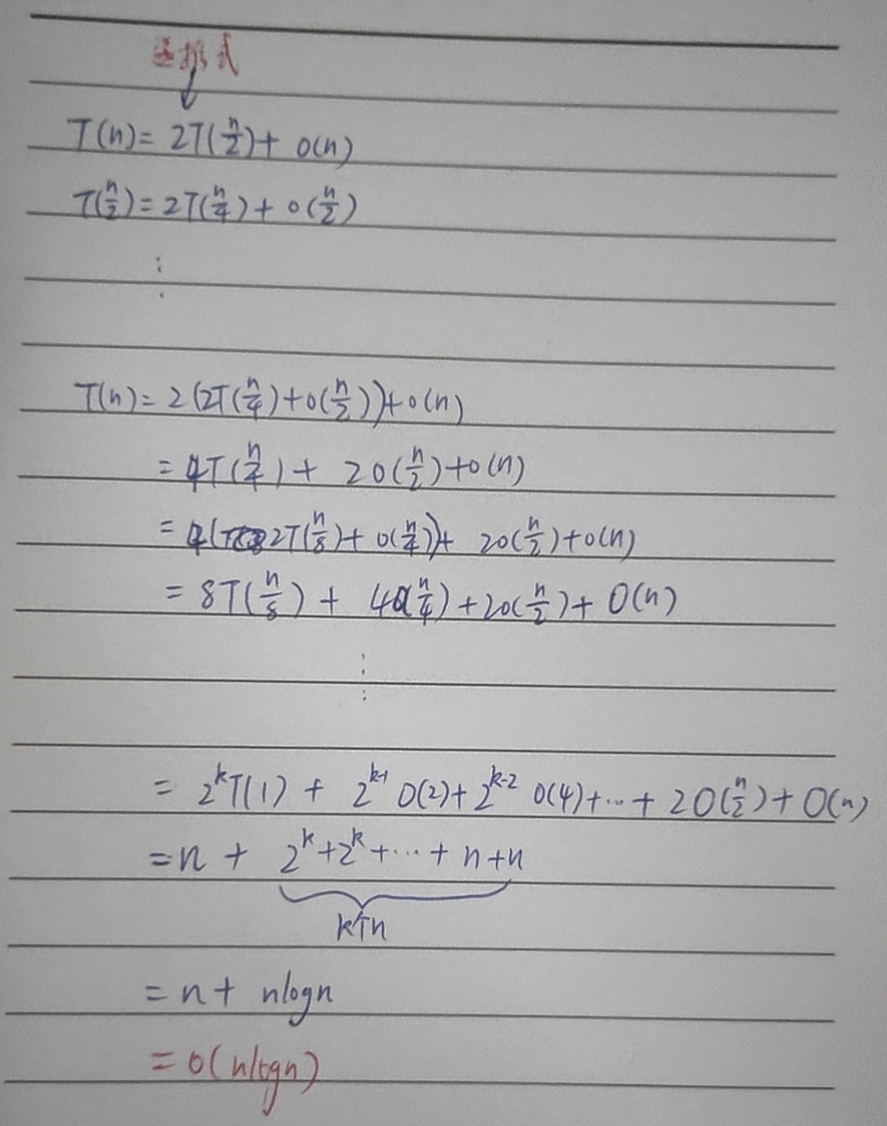 递推式
T(n)=2T(n/2)+O(n)
T(n/2)=2T(n/4)+O(n/2)
⋮
T(n)=2(2T(n/4)+O(n/2))+O(n)
=4T(n/4)+2O(n/2)+O(n)
=4(2T(n/8)+O(n/4))+2O(n/2)+O(n)
=8T(n/8)+4O(n/4)+2O(n/2)+O(n)
⋮
=2^k T(1)+2^(k-1) O(2)+2^(k-2) O(4)+…+2O(n/2)+O(n)
=n+2^k+2^k+…+n+n
k个n
=n+nlogn
=O(nlogn)